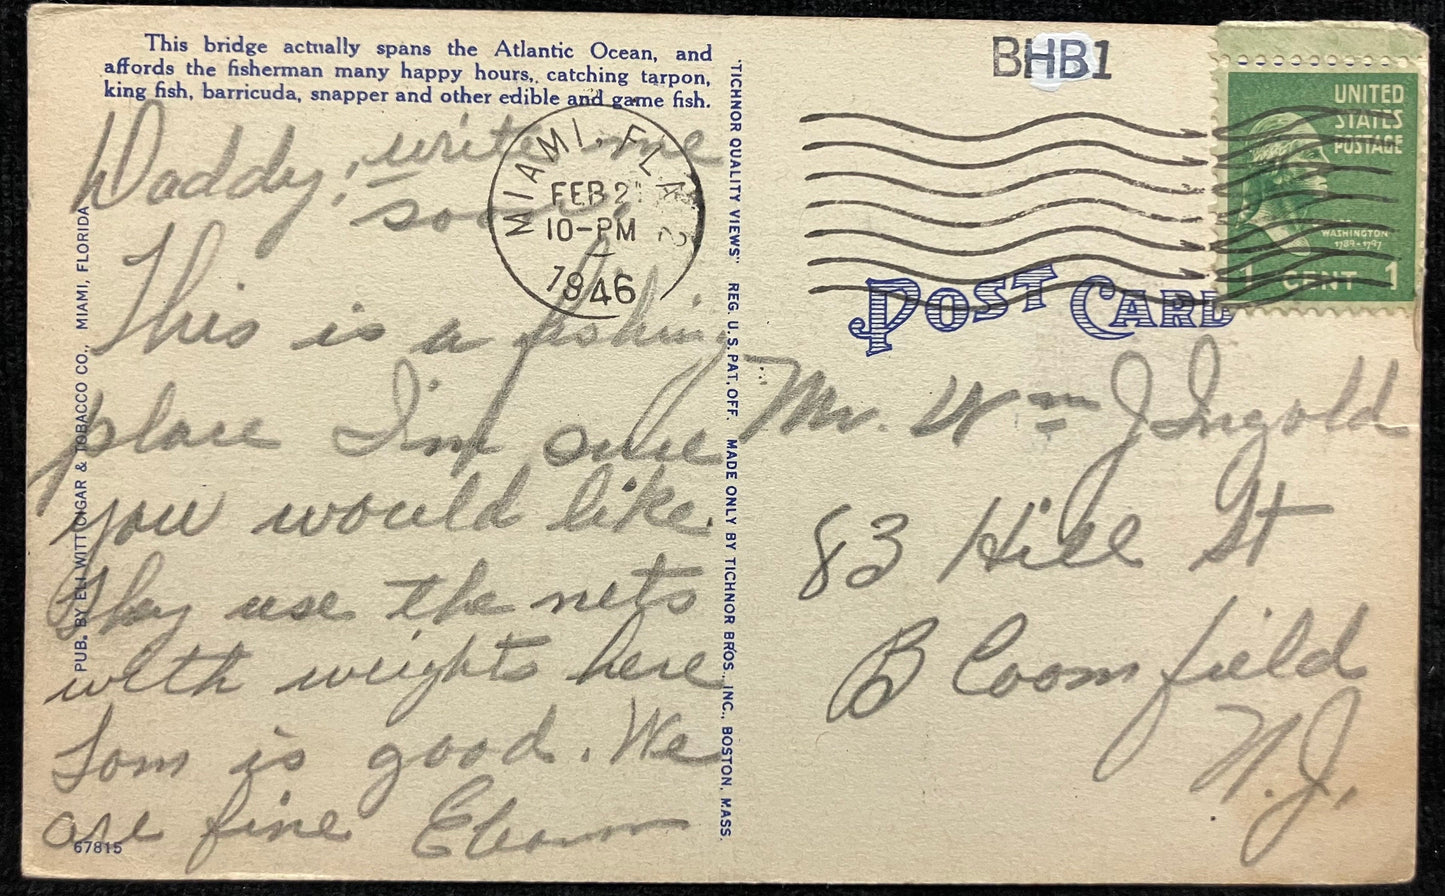 This bridge actually spans the Atlantic Ocean, and
affords the fisherman many happy hours, catching tarpon,
king fish, barricuda, snapper and other edible and game fish.
Daddy, write me
soon
This is a fishing
place I'm sure
you would like.
They use the nets
with weights here
Tom is good. We
are fine
67815
PUB. BY ELI WITT CIGAR & TOBACCO CO., MIAMI, FLORIDA
"TICHNOR QUALITY VIEWS" REG. U.S. PAT. OFF. MADE ONLY BY TICHNOR BROS., INC., BOSTON, MASS.
MIAMI, FLA.
FEB 2
10-PM
1946
BHB1
UNITED
STATES
POSTAGE
WASHINGTON
1789-1797
1 CENT 1
POST CARD
Mr. Wm J Ingold
83 Hill St
Bloomfield
N.J.